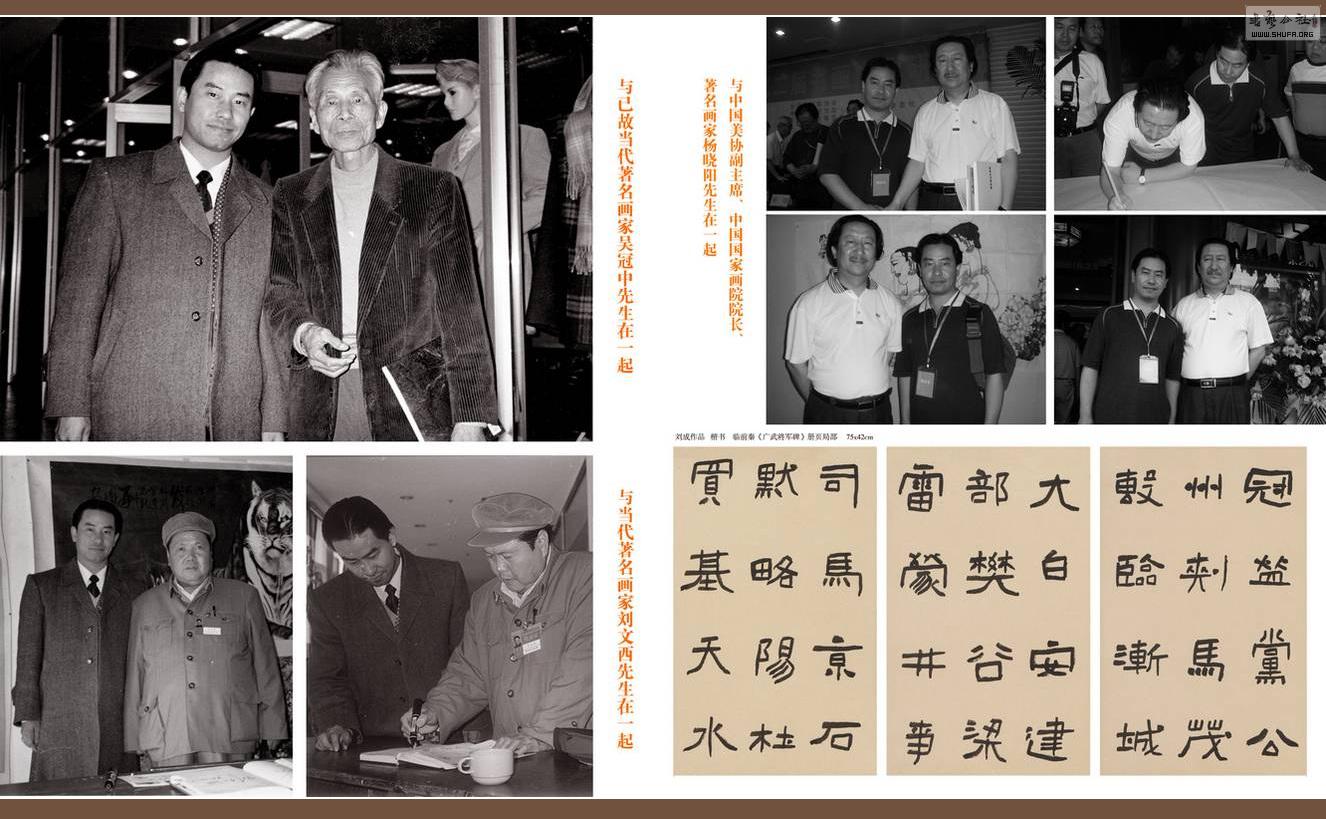 与已故当代著名画家吴冠中先生在一起
与当代著名画家刘文西先生在一起
与中国美协副主席、中国国家画院院长、
著名画家杨晓阳先生在一起
刘成作品 楷书 临前秦《广武将军碑》册页局部 75x42cm
司馬京石
默略陽杜
買基天水
大白安建
部樊谷梁
雷蒙井事
冠益黨公
州刺馬茂
轂臨漸城
WWW.SHUFA.ORG